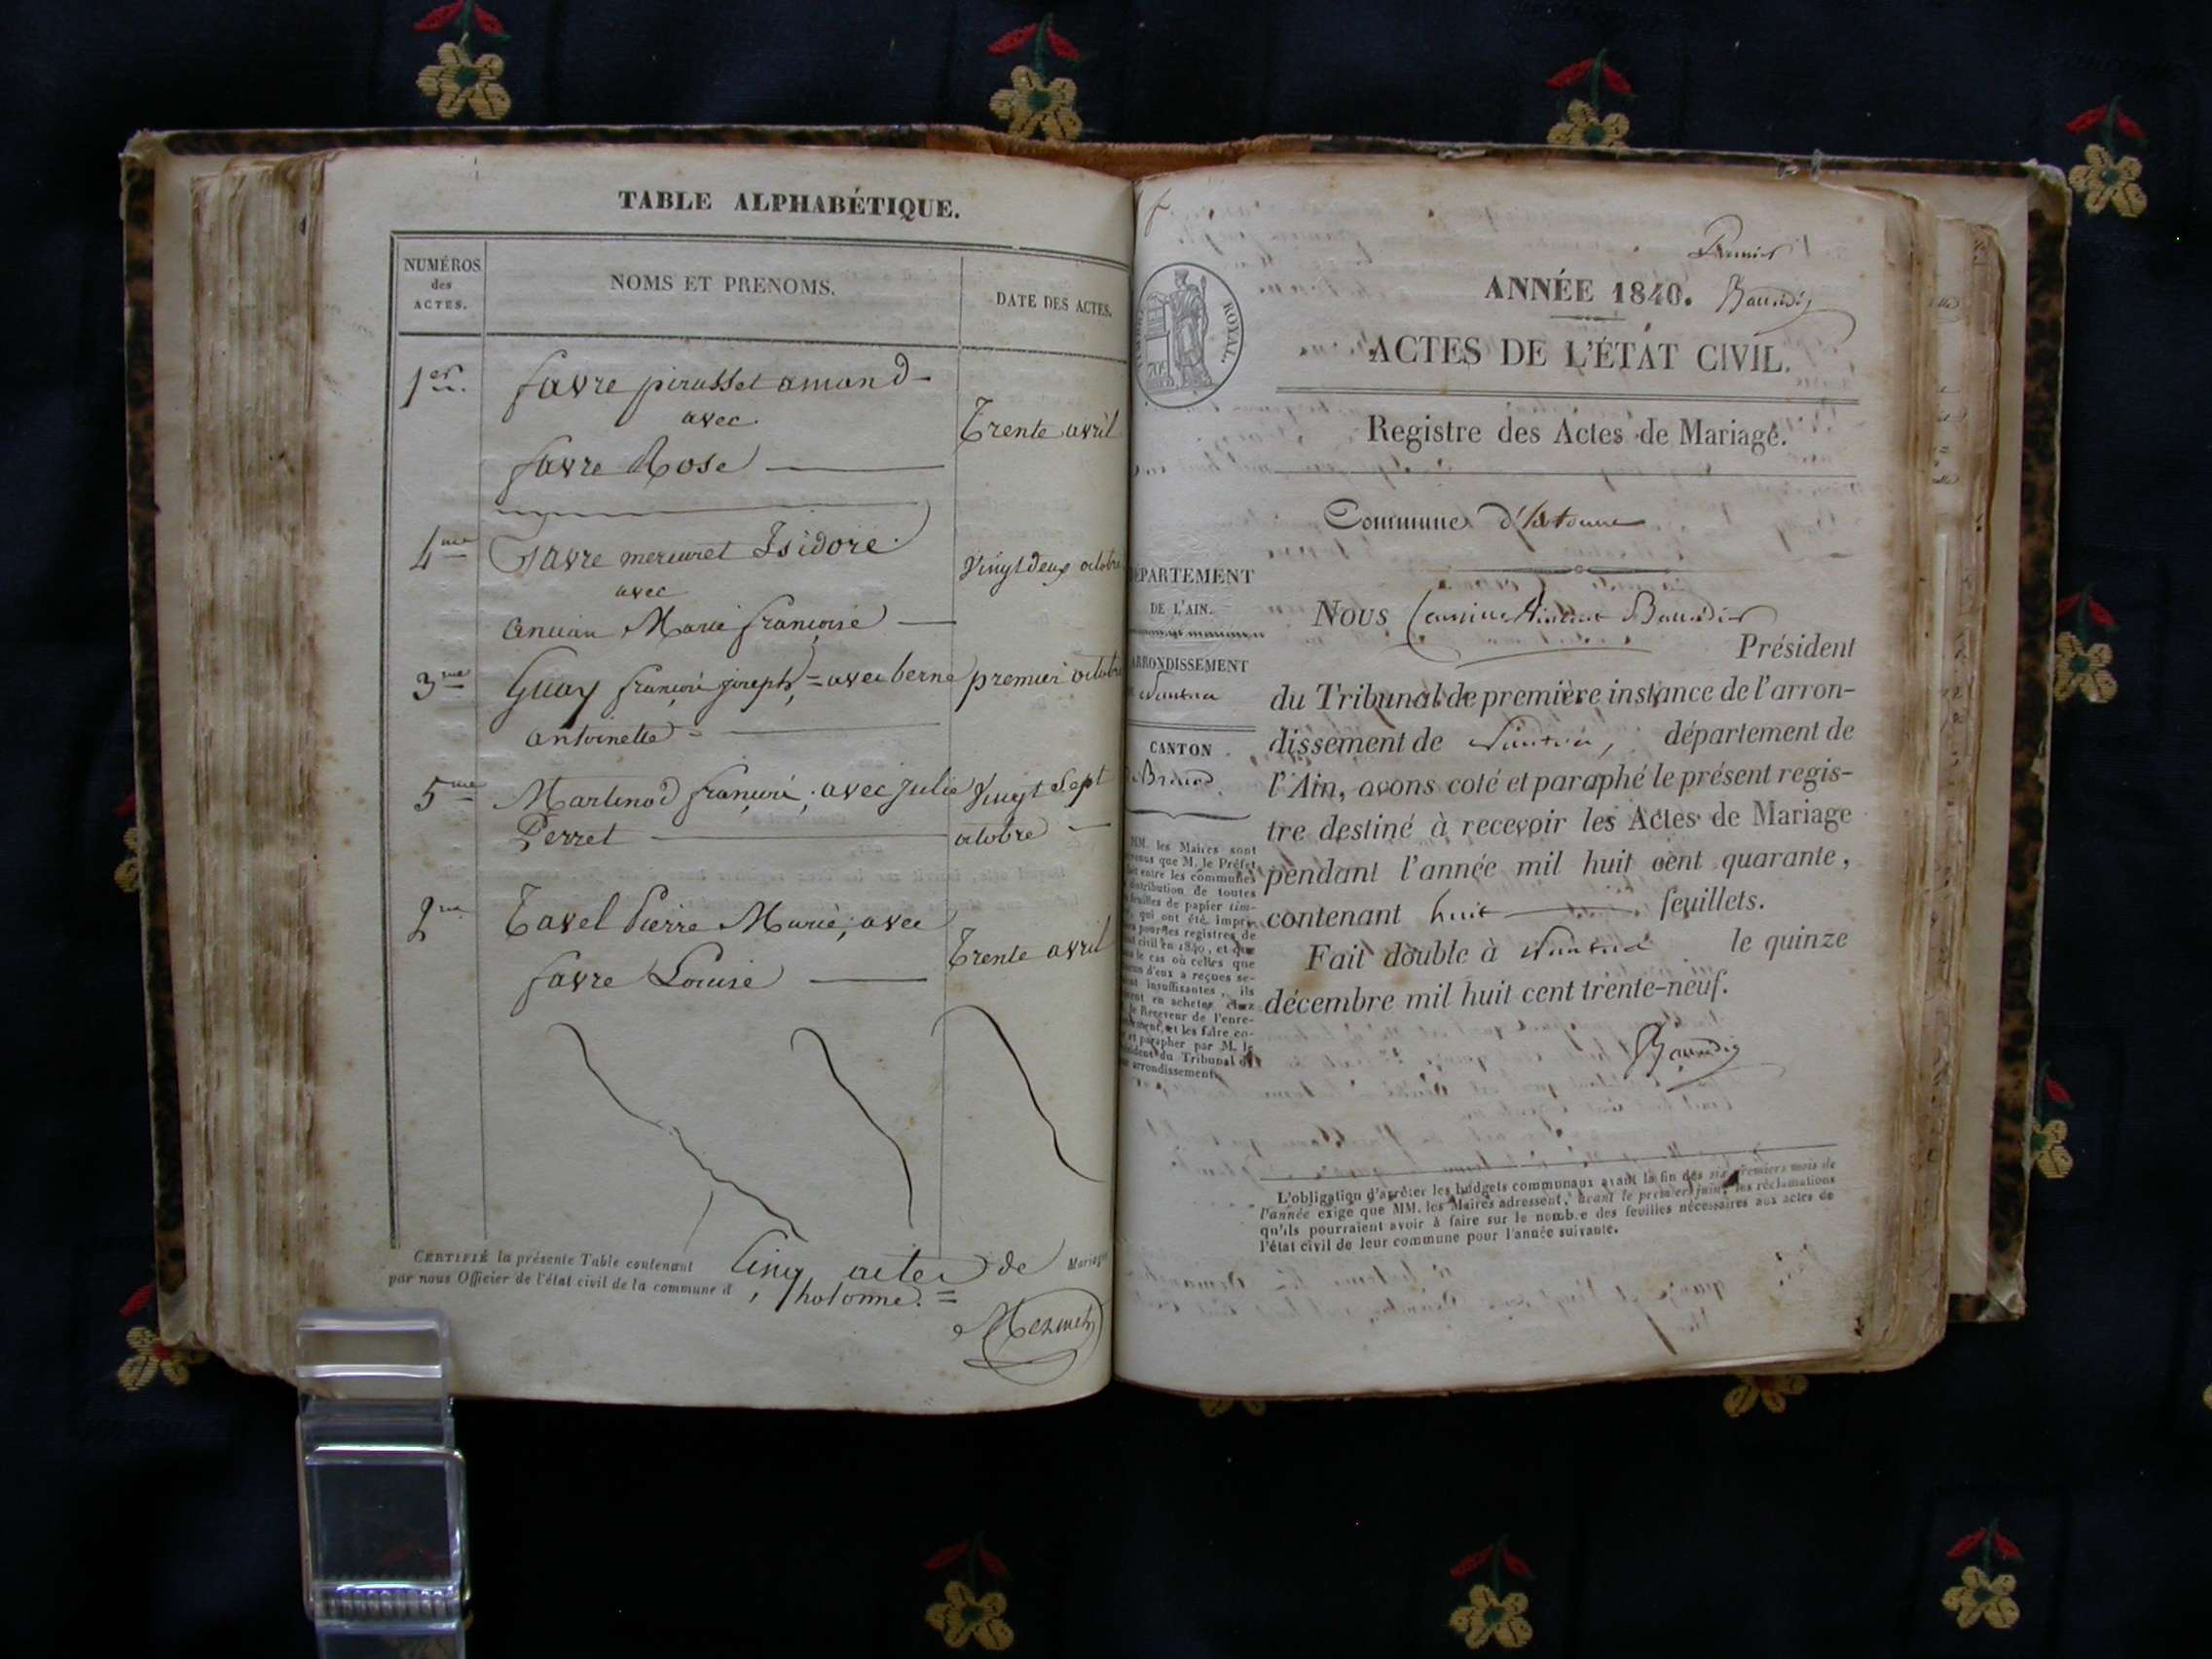 TABLE ALPHABÉTIQUE.
NUMÉROS
des
ACTES.
NOMS ET PRENOMS.
DATE DES ACTES.
1er.
favre pirasset amand
avec
favre Rose
Trente avril
4me
favre mercuret Isidore
avec
Marie françoise
Vingt deux octobre
3me
Guay françois joseph = avec berne
premier octobre
antoinette
5me
Martinod françois, avec julie
Vingt Sept
Perret
octobre
2me
Tavel Pierre Marie, avec
favre Louise
Trente avril
CERTIFIÉ la présente Table contenant Cinq actes de Mariage
par nous Officier de l'état civil de la commune d'hotonne. =
Premier
ROYAL.
ANNÉE 1840. Baudin
ACTES DE L'ÉTAT CIVIL.
Registre des Actes de Mariage.
Commune d'hotonne
DÉPARTEMENT
DE L'AIN.
ARRONDISSEMENT
Nantua
CANTON
Brénod
MM. les Maires sont
prévenus que M. le Préfet
fait entre les communes
distribution de toutes
feuilles de papier tim-
qui ont été impri-
pour les registres de
civil en 1840, et que
le cas où celles que
d'eux a reçues se-
insuffisantes, ils
en acheter chez
le Receveur de l'enre-
et les faire co-
et parapher par M. le
Président du Tribunal de
arrondissement.
Nous
Président
du Tribunal de première instance de l'arron-
dissement de Nantua, département de
l'Ain, avons coté et paraphé le présent regis-
tre destiné à recevoir les Actes de Mariage
pendant l'année mil huit cent quarante,
contenant huit feuillets.
Fait double à Nantua le quinze
décembre mil huit cent trente-neuf.
Baudin
L'obligation d'arrêter les budgets communaux avant la fin des six premiers mois de
l'année exige que MM. les Maires adressent, avant le premier juin, les réclamations
qu'ils pourraient avoir à faire sur le nombre des feuilles nécessaires aux actes de
l'état civil de leur commune pour l'année suivante.